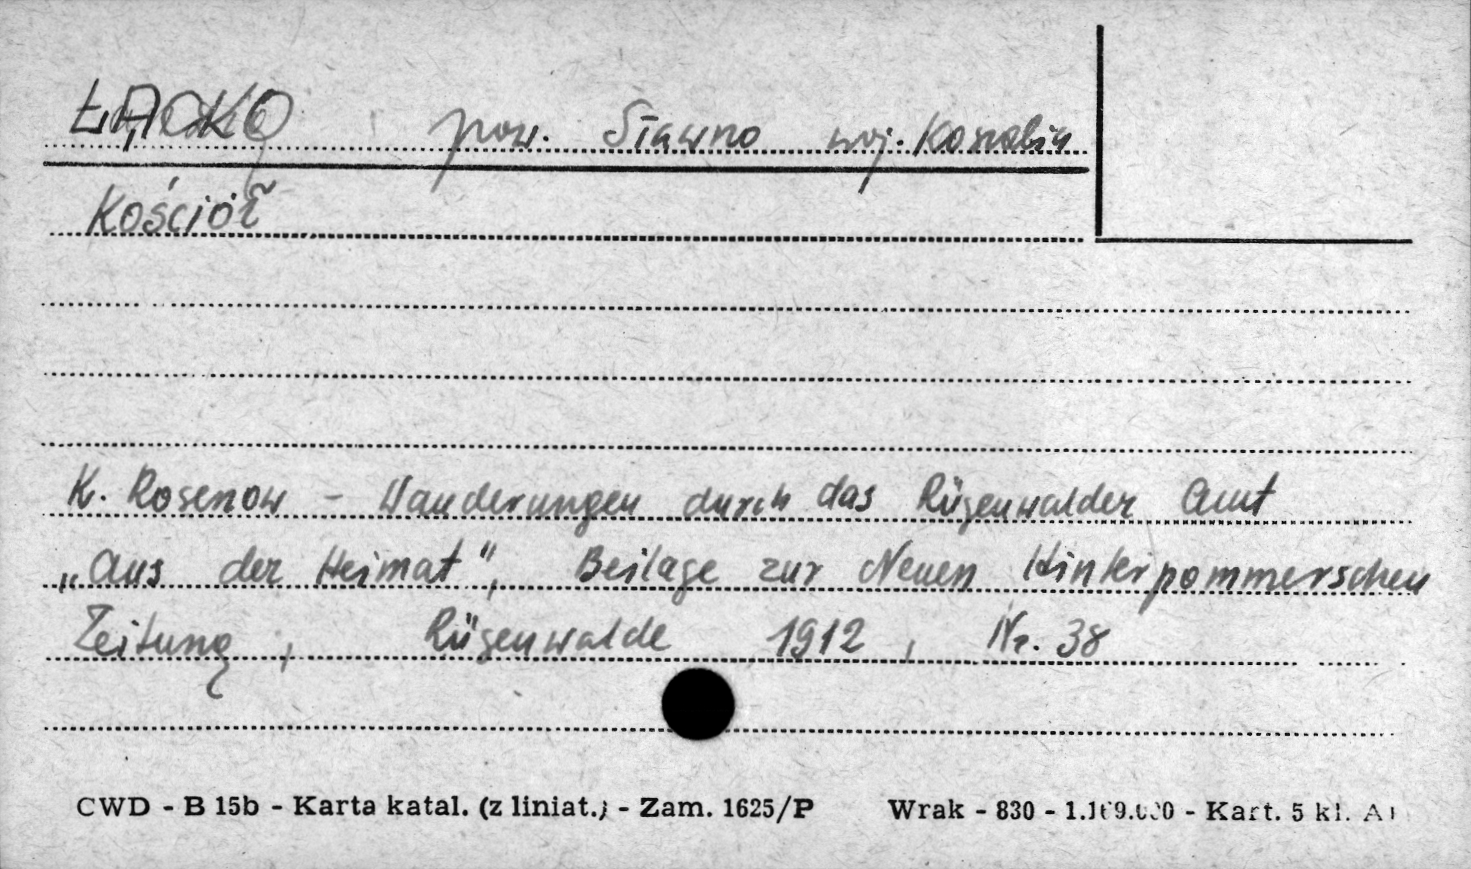 ŁĄCKO pow. Sławno woj. Koszalin
Kościół
K. Rosenow - Wanderungen durch das Rügenwalder Amt
„Aus der Heimat", Beilage zur Neuen Hinterpommerschen
Zeitung, Rügenwalde 1912, Nr. 38
CWD - B 15b - Karta katal. (z liniat.) - Zam. 1625/P Wrak - 830 - 1.169.000 - Kart. 5 kl.